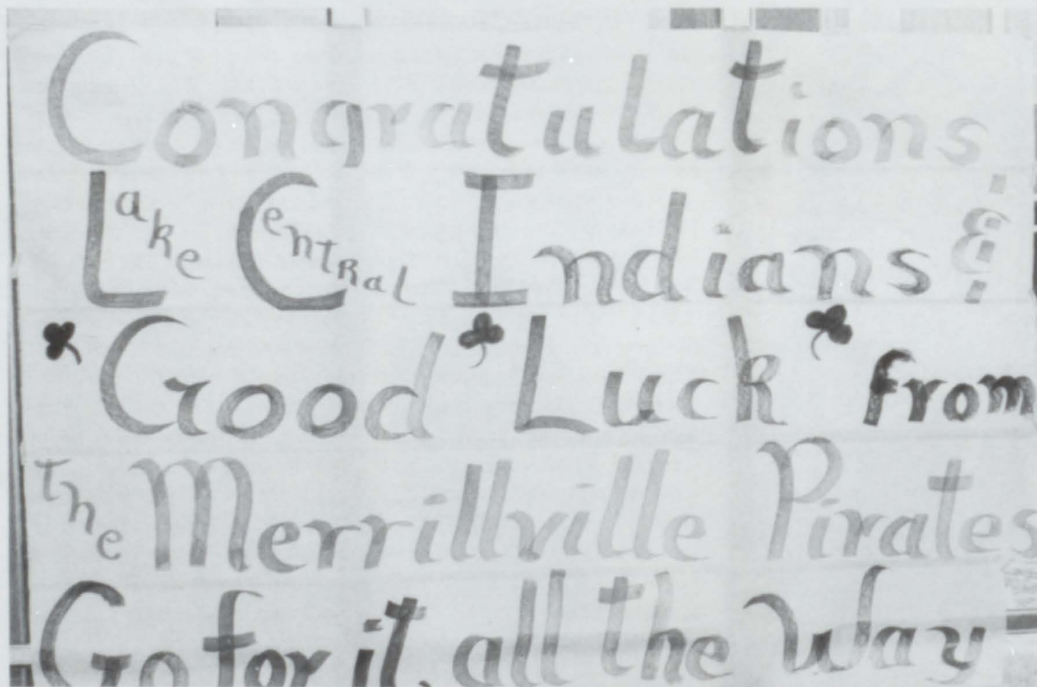 Congratulations
Lake Central Indians &
Good Luck from
the Merrillville Pirates
Go for it, all the Way